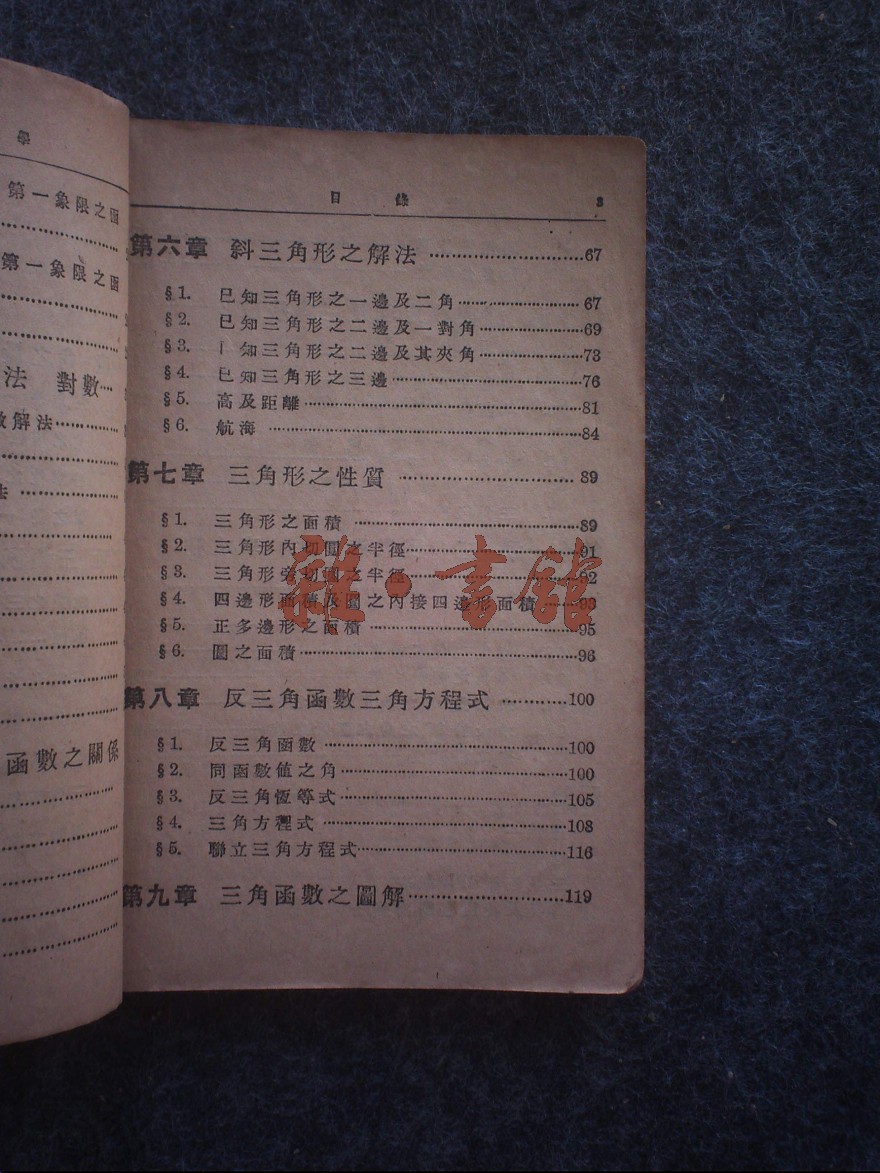 學
第一象限之圖
第一象限之圖
法 對數
解法
法
函數之關係
目 錄 3
第六章 斜三角形之解法 67
§1. 已知三角形之一邊及二角 67
§2. 已知三角形之二邊及一對角 69
§3. 知三角形之二邊及其夾角 73
§4. 已知三角形之三邊 76
§5. 高及距離 81
§6. 航海 84
第七章 三角形之性質 89
§1. 三角形之面積 89
§2. 三角形內切圓之半徑 91
§3. 三角形旁切圓之半徑 92
§4. 四邊形面積及圓之內接四邊形面積 93
§5. 正多邊形之面積 95
§6. 圓之面積 96
第八章 反三角函數三角方程式 100
§1. 反三角函數 100
§2. 同函數值之角 100
§3. 反三角恆等式 105
§4. 三角方程式 108
§5. 聯立三角方程式 116
第九章 三角函數之圖解 119
雜·書館